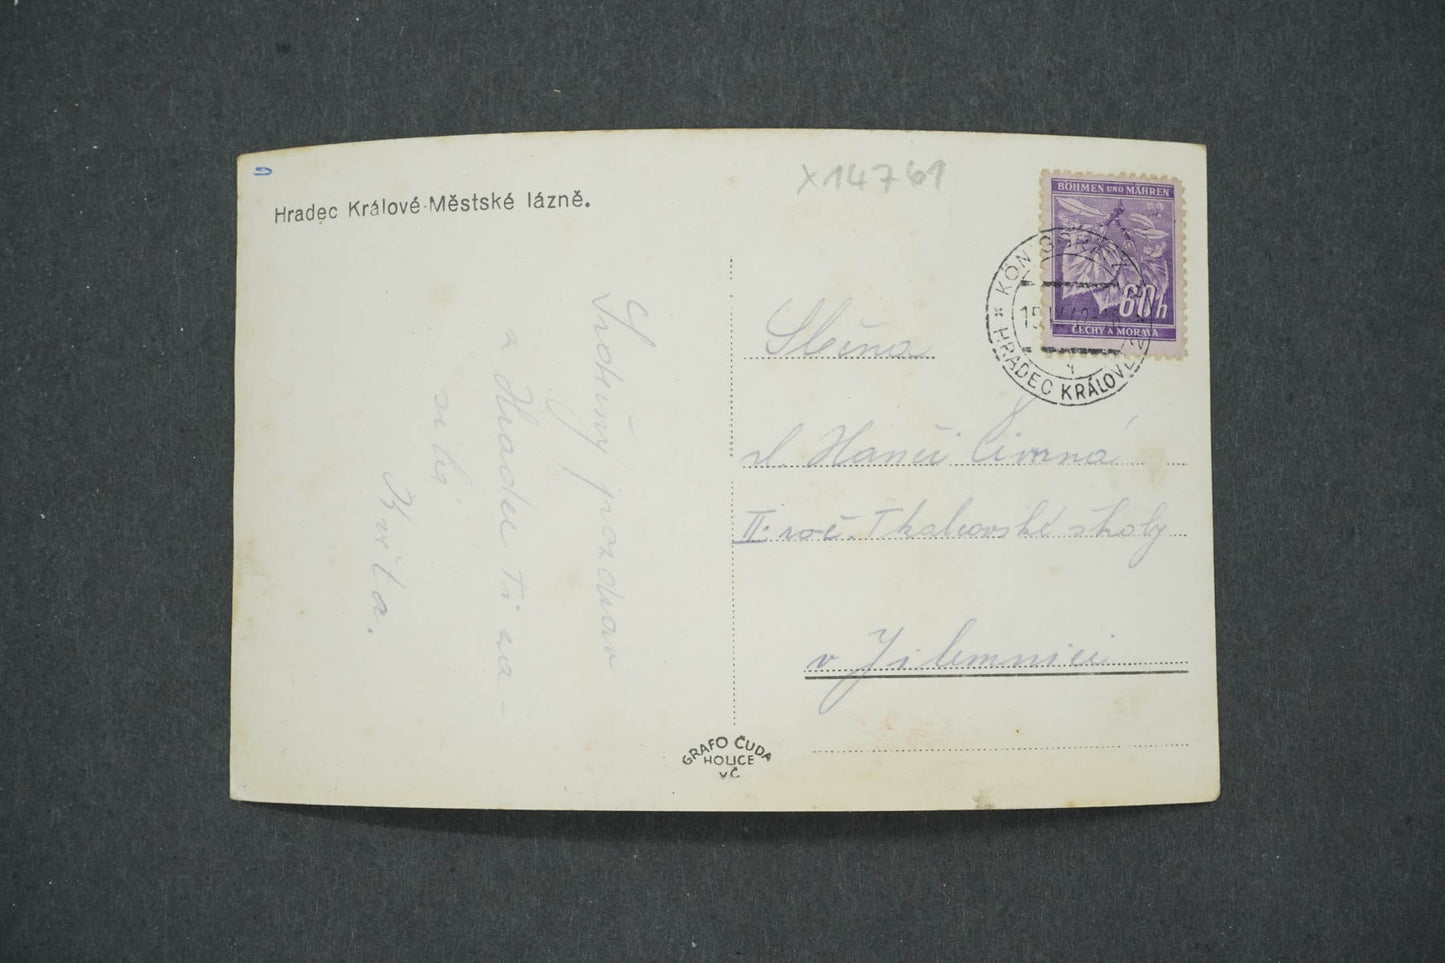 X14761
Hradec Králové-Městské lázně.
BÖHMEN UND MÄHREN
60h
ČECHY A MORAVA
KÖNIGGRÄTZ
HRADEC KRÁLOVÉ 2
Srdečný pozdrav
z Hradce ti za-
sílá
Květa.
Slečna
sl. Hanči
II. roč. Tkalcovské školy
v Jilemnici
GRAFO ČUDA
HOLICE
VČ